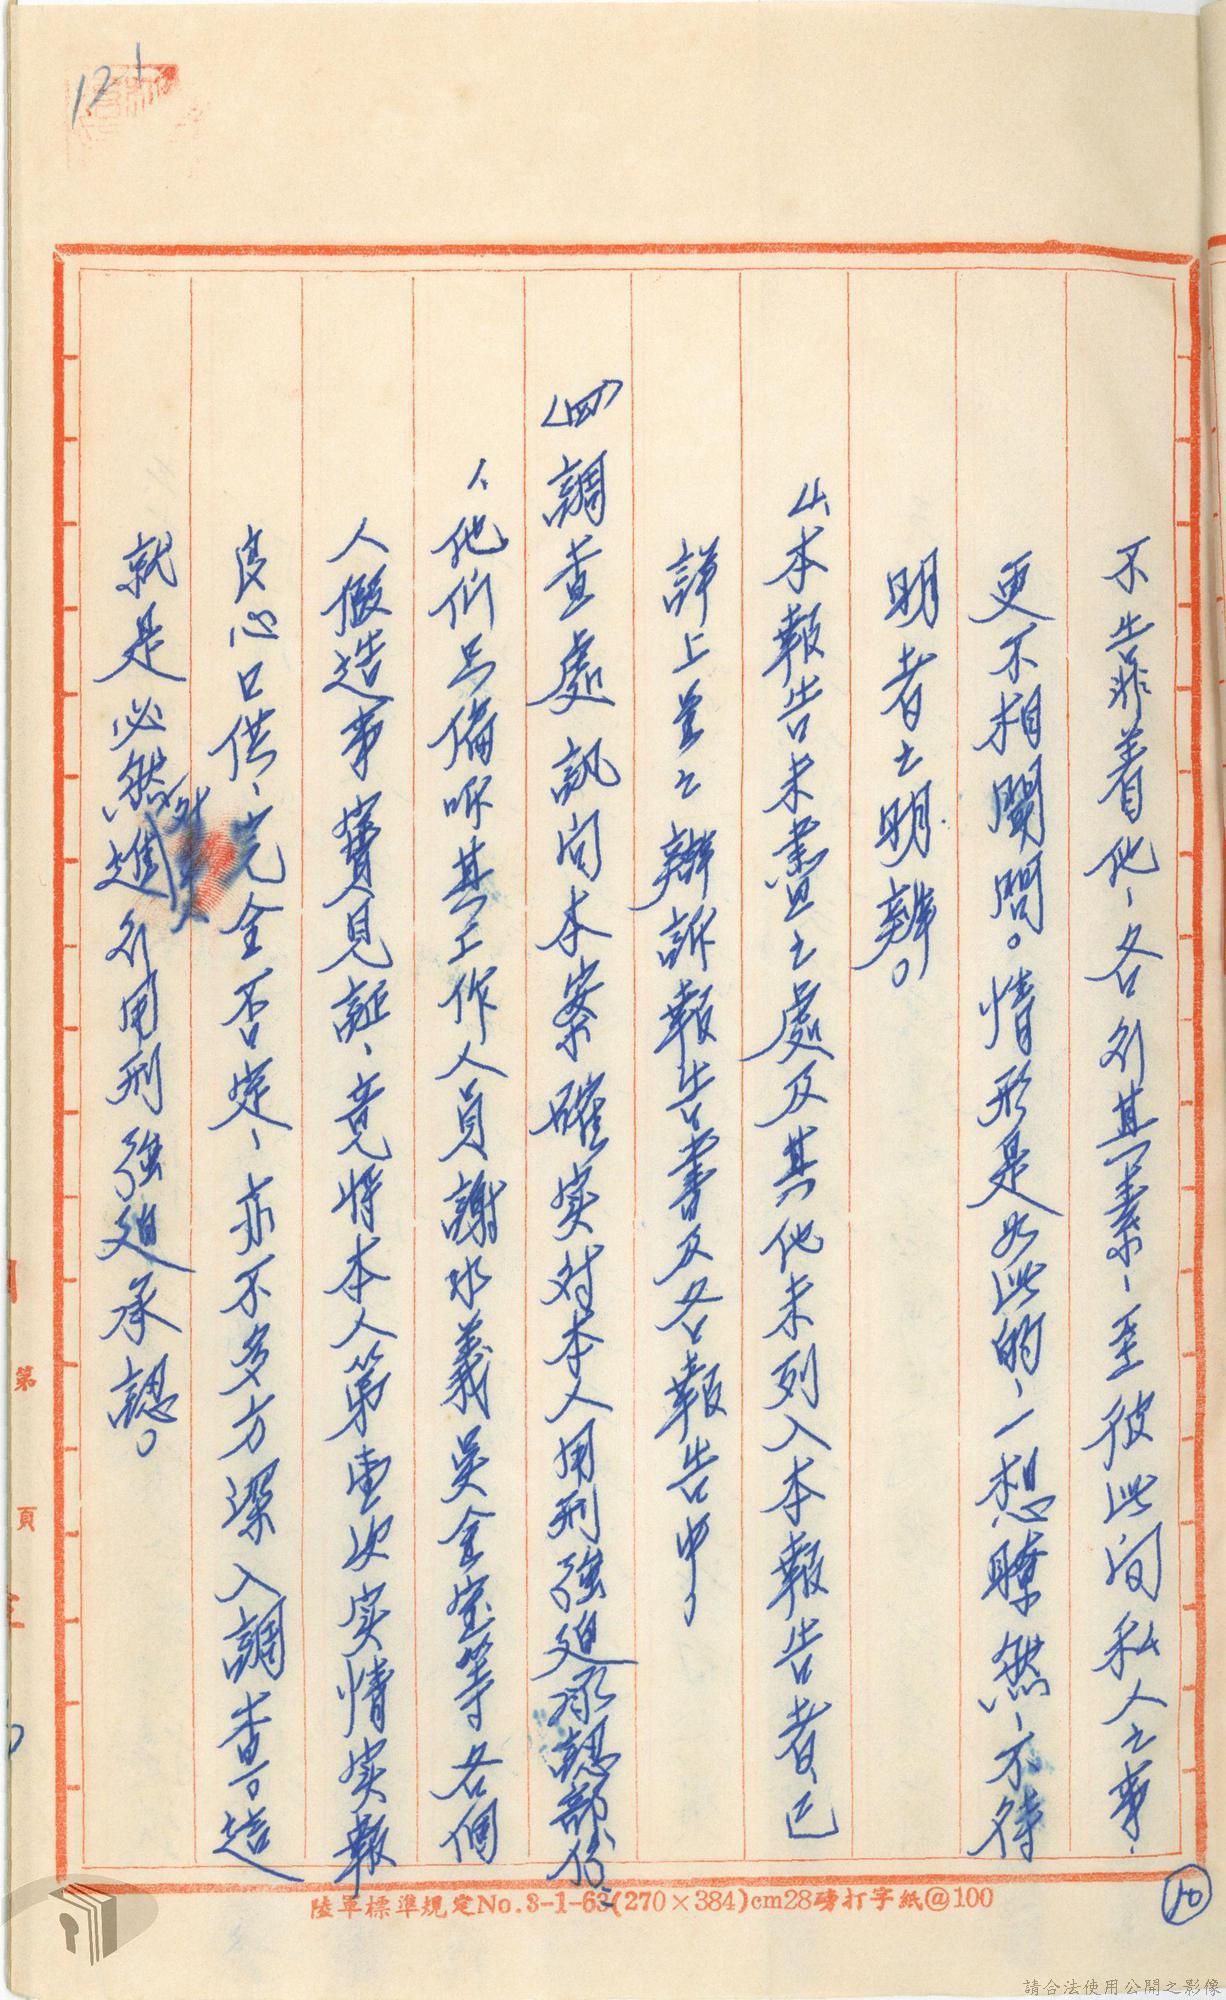 121
不告訴着他、各行其素、至彼此间私人之事、
更不相聞問。情形是如此的、一想瞭然、不待
明者之明辨。
4、本報告未盡之處及其他未列入本報告者、已
詳上呈之辯訴報告書及各報告中、
(四)調查處訊问本案確实对本人用刑強迫承認部份、
1、他們只偏听其工作人員謝水義吳金宝等各個
人假造事實見証、竟將本人第壹次实情实報
良心口供、完全否定、亦不多方深入調查。這
就是必然对本人進行用刑強迫承認。
10
第 頁
陸軍標準規定No.3-1-63(270×384)cm28磅打字紙@100
請合法使用公開之影像